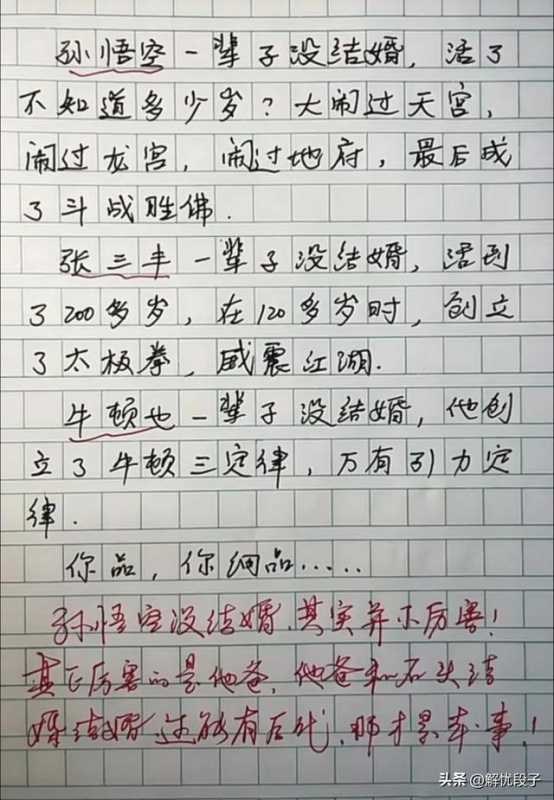 孙悟空一辈子没结婚，活了
不知道多少岁？大闹过天宫，
闹过龙宫，闹过地府，最后成
了斗战胜佛.
张三丰一辈子没结婚，活到
了200多岁，在120多岁时，创立
了太极拳，威震江湖.
牛顿也一辈子没结婚，他创
立了牛顿三定律，万有引力定
律.
你品，你细品.....
孙悟空没结婚，其实并不厉害！
真正厉害的是他爸，他爸和石头结
婚结婚还能有后代，那才是本事！
头条 @解忧段子